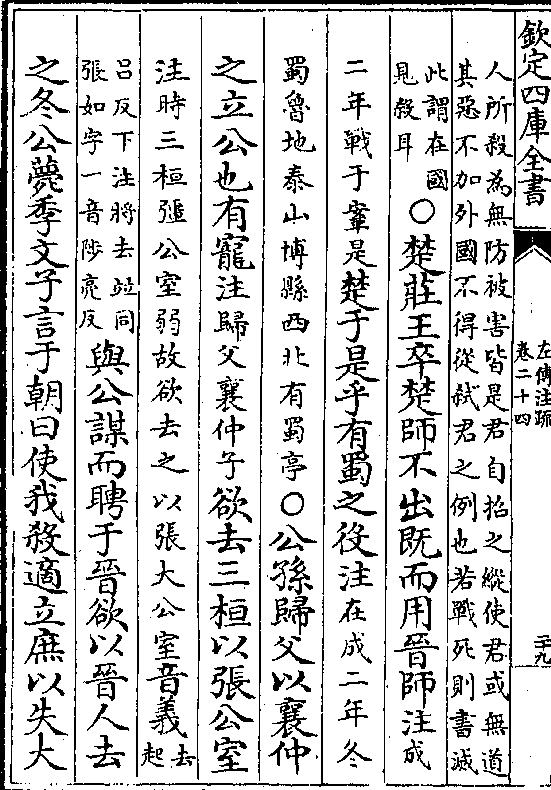 欽定四庫全書
左傳注疏
卷二十四
二十九
人所殺為無防被害皆是君自招之縱使君或無道
其惡不加外國不得從弒君之例也若戰死則書滅
此謂在國
見殺耳
○楚莊王卒楚師不出既而用晉師注成
二年戰于鞌是楚于是乎有蜀之役注在成二年冬
蜀魯地泰山博縣西北有蜀亭○公孫歸父以襄仲
之立公也有寵注歸父襄仲子欲去三桓以張公室
注時三桓彊公室弱故欲去之以張大公室音義去起
呂反下注將去竝同
張如字一音陟亮反
與公謀而聘于晉欲以晉人去
之冬公薨季文子言于朝曰使我殺適立庶以失大